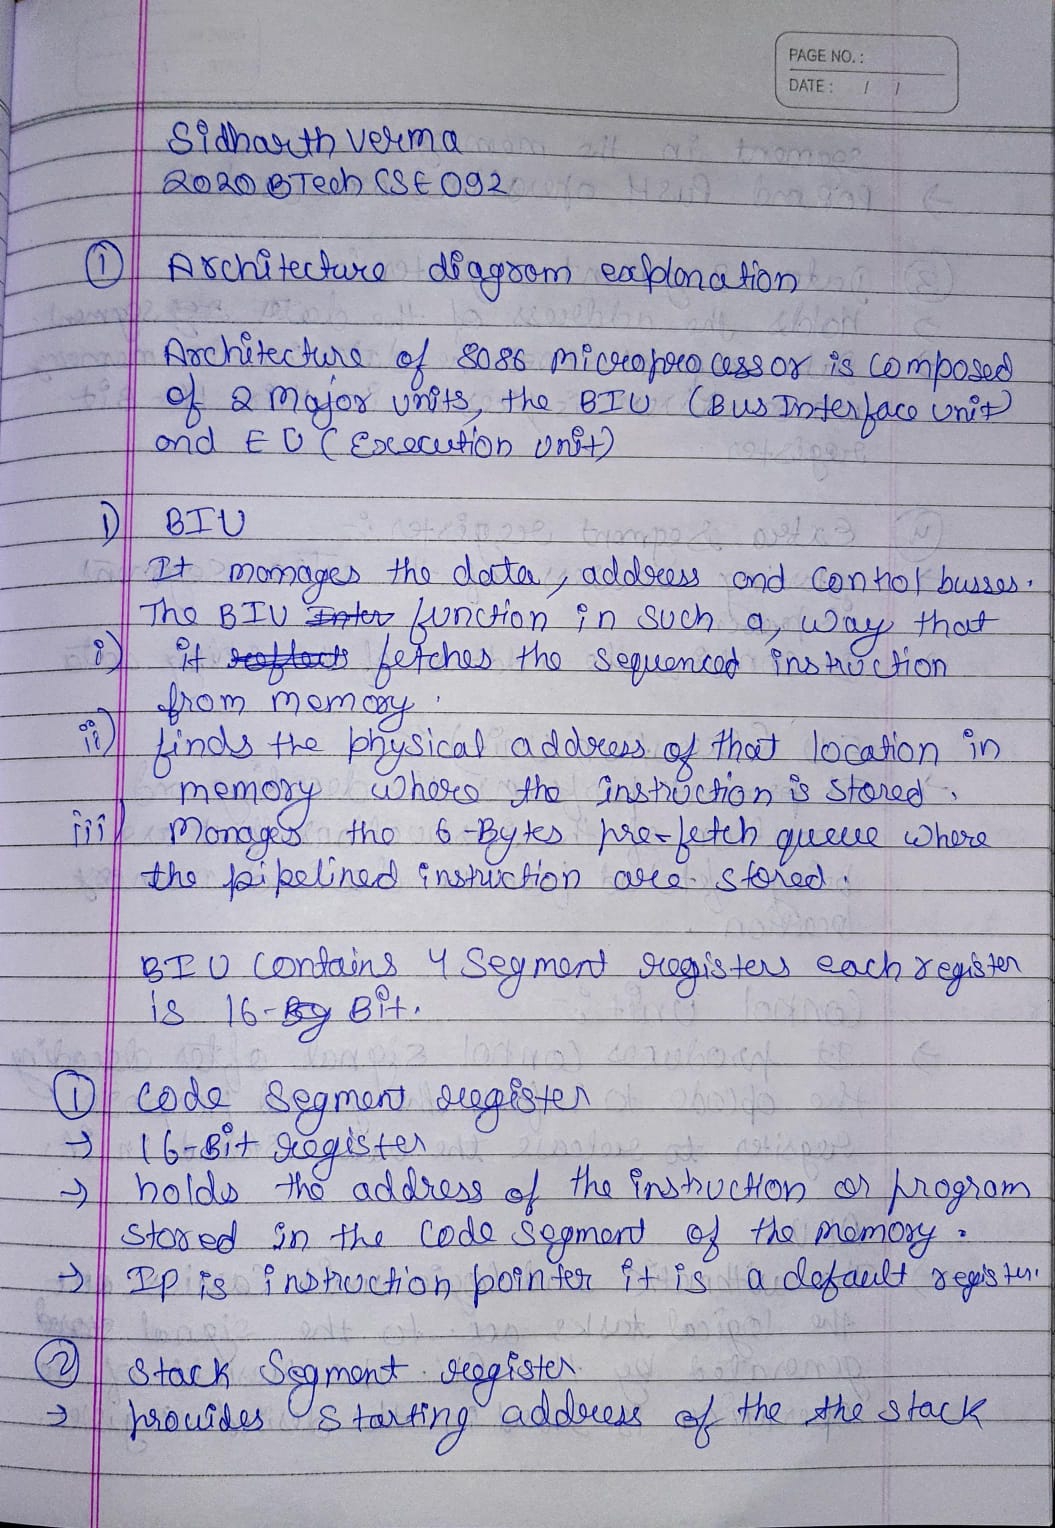 PAGE NO. :
DATE : / /
Sidharth Verma
2020BTechCSE092
① Architecture diagram explanation
Architecture of 8086 microprocessor is composed
of 2 Major units, the BIU (Bus Interface unit)
and EU (Execution unit)
1) BIU
It manages the data, address and control busses.
The BIU Inter function in such a, way that
i) it reflects fetches the sequenced instruction
from memory.
ii) finds the physical address of that location in
memory where the instruction is stored.
iii) Manages the 6-Bytes pre-fetch queue where
the pipelined instruction are stored.
BIU contains 4 Segment registers each register
is 16-By Bit.
① Code Segment register
→ 16-Bit register
→ holds the address of the instruction or program
stored in the code segment of the memory.
→ IP is instruction pointer it is a default register.
② Stack Segment register
→ provides starting address of the the stack